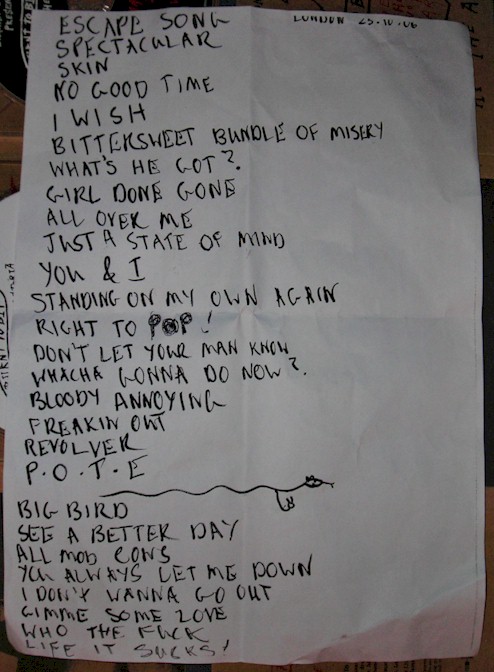 LONDON 25.10.06
ESCAPE SONG
SPECTACULAR
SKIN
NO GOOD TIME
I WISH
BITTERSWEET BUNDLE OF MISERY
WHAT'S HE GOT?
GIRL DONE GONE
ALL OVER ME
JUST A STATE OF MIND
YOU & I
STANDING ON MY OWN AGAIN
RIGHT TO POP!
DON'T LET YOUR MAN KNOW
WHACHA GONNA DO NOW?
BLOODY ANNOYING
FREAKIN OUT
REVOLVER
P.O.T.E
BIG BIRD
SEE A BETTER DAY
ALL MOD CONS
YOU ALWAYS LET ME DOWN
I DON'T WANNA GO OUT
GIMME SOME LOVE
WHO THE FUCK
LIFE IT SUCKS!